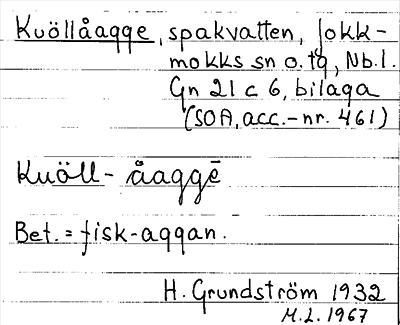 Kuöllåagge, spakvatten, Jokk-
mokks sn o. tg, Nb.l.
Gn 21 c 6, bilaga
(SOA, acc.-nr. 461)
Kuöll-åaggē
Bet. = fisk-aggan.
H. Grundström 1932
M.L. 1967